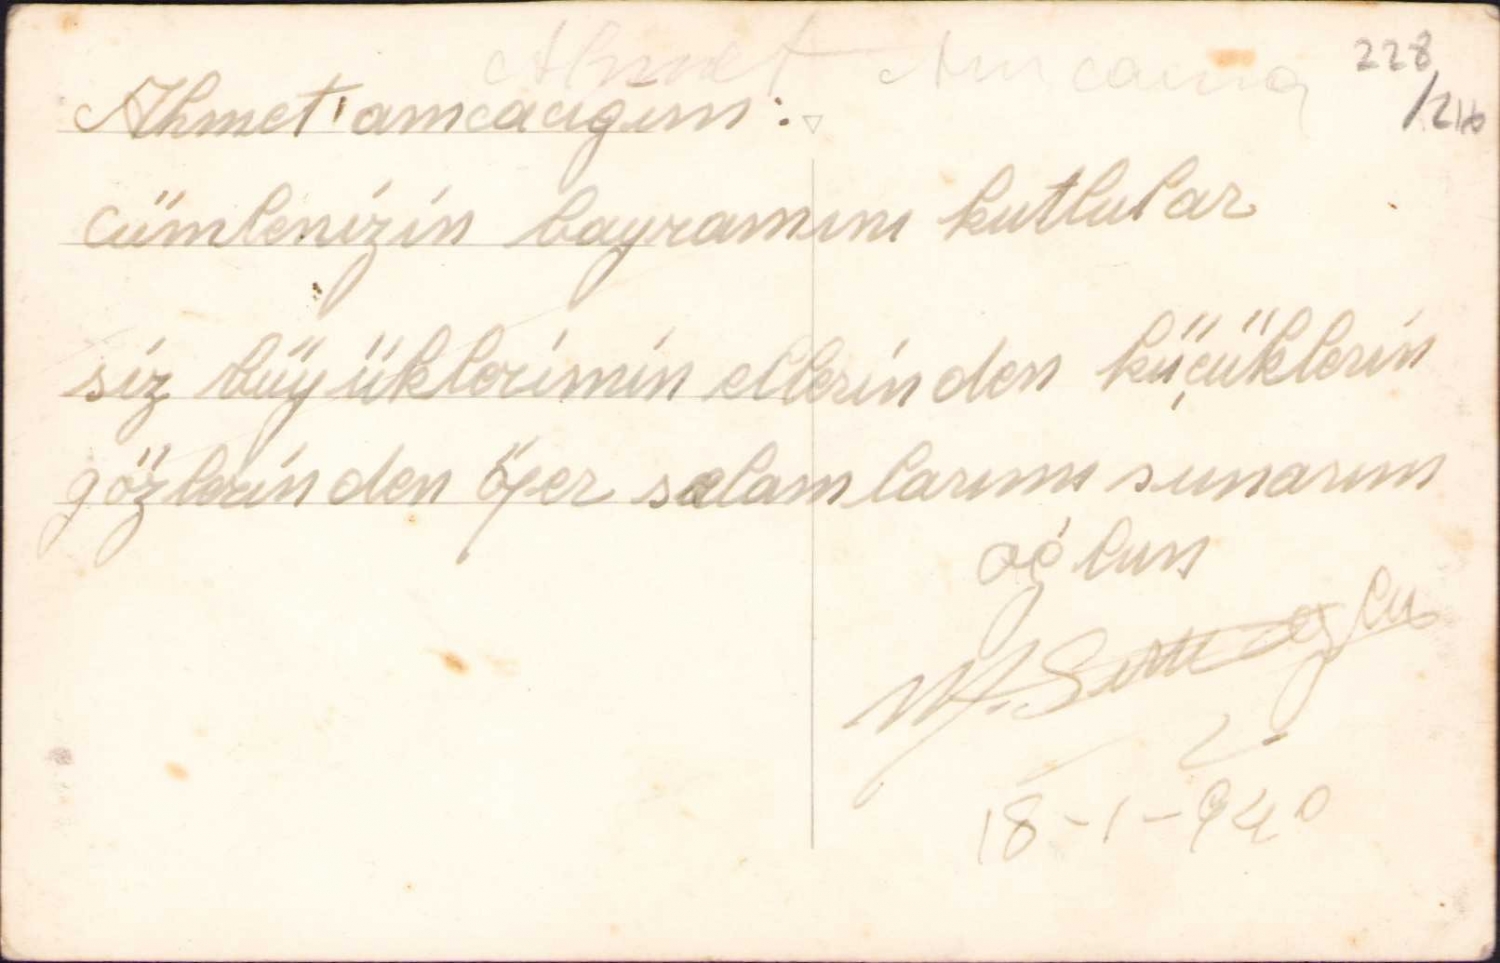 Ahmet Amcama
228
/216
Ahmet amcacığım :
cümlenizin bayramını kutlular
siz büyüklerimin ellerinden küçüklerin
gözlerinden öper selamlarımı sunarım
oğlun
18-1-940